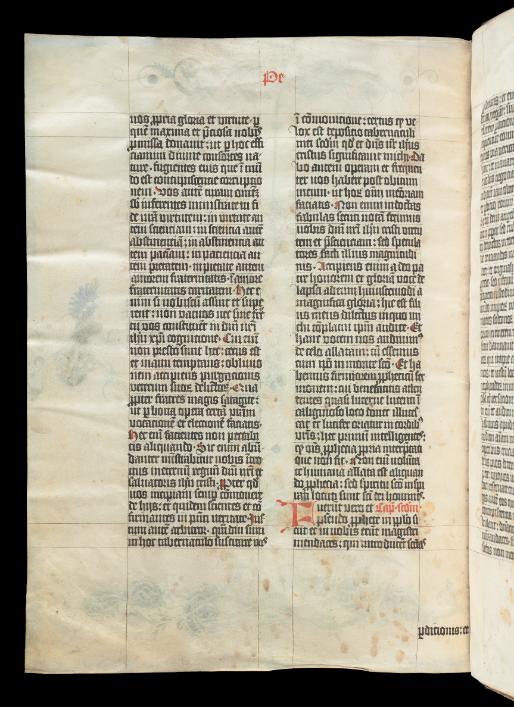 Pe
nos ꝓpria gloria et virtute· ꝑ
quē maxima et p̄ciosa nobis
ꝓmissa donauit: ut ꝑ hoc effi
ciamini diuine consortes na
ture· fugientes eius que ī mū
do est concupiscencie corrupcio
nem· Vos autē curam omnē
sb̄inferentes ministrate in fi
de urā virtutem: in virtute au
tem scienciam: in sciencia autē
abstinenciā: in abstinencia au
tem pacienciā: in paciencia au
tem pietatem· in pietate autem
amorem fraternitatis· in amore
fraternitatis caritatem· Hec e
nim si uobiscū assint et supe
rent: non vacuos nec sine fru
ctu vos constituēt in dn̄i nr̄i
ihū xp̄i cognitione· Cui eni
non presto sunt hec: cecus est
et manu temptans: obliuio
nem accipiens purgacionis
veterum suoꝝ delictoꝝ· Qua
ꝓpter fratres magis satagite:
ut ꝑ bona opera certā vrām
vocacionē et electionē faciatis·
Hec enī facientes non peccabi
tis aliquando· Sic enim abū
danter ministrabitur uobis intro
itus in eternū regnū dn̄i nr̄i et
saluatoris ihū cristi· Propter qd̄
uos incipiam semꝑ cōmonere
de hijs: et quidem scientes et cō
firmatos in pn̄ti veritate· Jus
tum autē arbitror· quā diu sum
in hoc tabernaculo suscitare uos
ī cōmonitione: certus qꝫ ve
lox est deposicio tabernaculi
mei scdm̄ qd̄ et dn̄s ih̄s
cristus significauit michi· Da
bo autem operam et frequen
ter uos habere post obitum
meum· ut horꝝ oīm memoriam
faciatis· Non enim indoctas
fabulas secuti notā fecimus
uobis dn̄i nr̄i ihū cristi virtu
tem et p̄scienciam: sed specula
tores facti illius magnitudi
nis· Accipiens enim a deo pa
tre honorem et gloriā voce de
lapsa ad eum huiuscemodi a
magnifica gloria: hic est fili
us meus dilectus in quo mi
chi cōplacui ipm̄ audite· Et
hanc vocem nos audiuim̄
de celo allatam: cū essemus
cum ip̄o in monte scō· Et ha
bemus firmiorem ꝓpheticū ser
monem: cui benefacitis atten
dentes quasi lucerne lucenti ī
caliginoso loco donec dies illuces
cat et lucifer oriatur in cordibꝰ
vrīs: hec primū intelligentes:
qꝫ oīs ꝓphecia ꝓpria interpretati
one non fit· Non enī uolūta
te humana allata est aliquan
do ꝓphecia: sed spiritu scō inspi
rati locuti sunt scī dei homines·
Fuerūt vero et Cap̄· scdm̄
pseudo ꝓphete in pp̄lo si
cut et in uobis erūt magistri
mendaces: qui introducēt sectas
ꝑdicionis: et